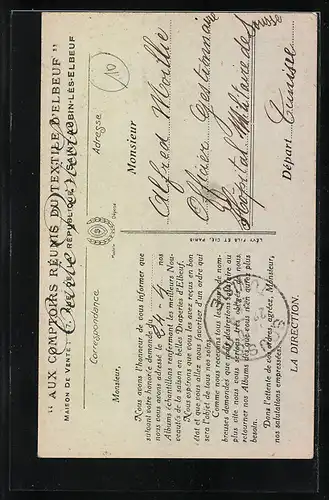 " AUX COMPTOIRS RÉUNIS DU TEXTILE D'ELBEUF "
MAISON DE VENTE : RÉPUBLIQUE, SAINT-AUBIN-LÈS-ELBEUF
Correspondance
Adresse
10
Monsieur,
Nous avons l'honneur de vous informer que
suivant votre honorée demande du
nous vous avons adressé le 24-4 nos
Albums échantillons renfermant les meilleurs Nou-
veautés de la saison en belles Draperies d'Elbeuf.
Nous espérons que vous les avez reçus en bon
état et que vous allez nous favoriser d'un ordre qui
sera l'objet de tous nos soins.
Comme nous recevons tous les jours de nom-
breuses demandes que nous désirerions satisfaire au
plus vite nous vous serions très obligés de nous
retourner nos Albums dès que vous n'en aurez plus
besoin.
Dans l'attente de vos ordres, agréez, Monsieur,
nos salutations empressées.
LA DIRECTION.
LÉVY FILS ET CIE, PARIS
Monsieur
Alfred
Officier Gestionnaire
Hôpital Militaire de Sousse
Départ Tunisie